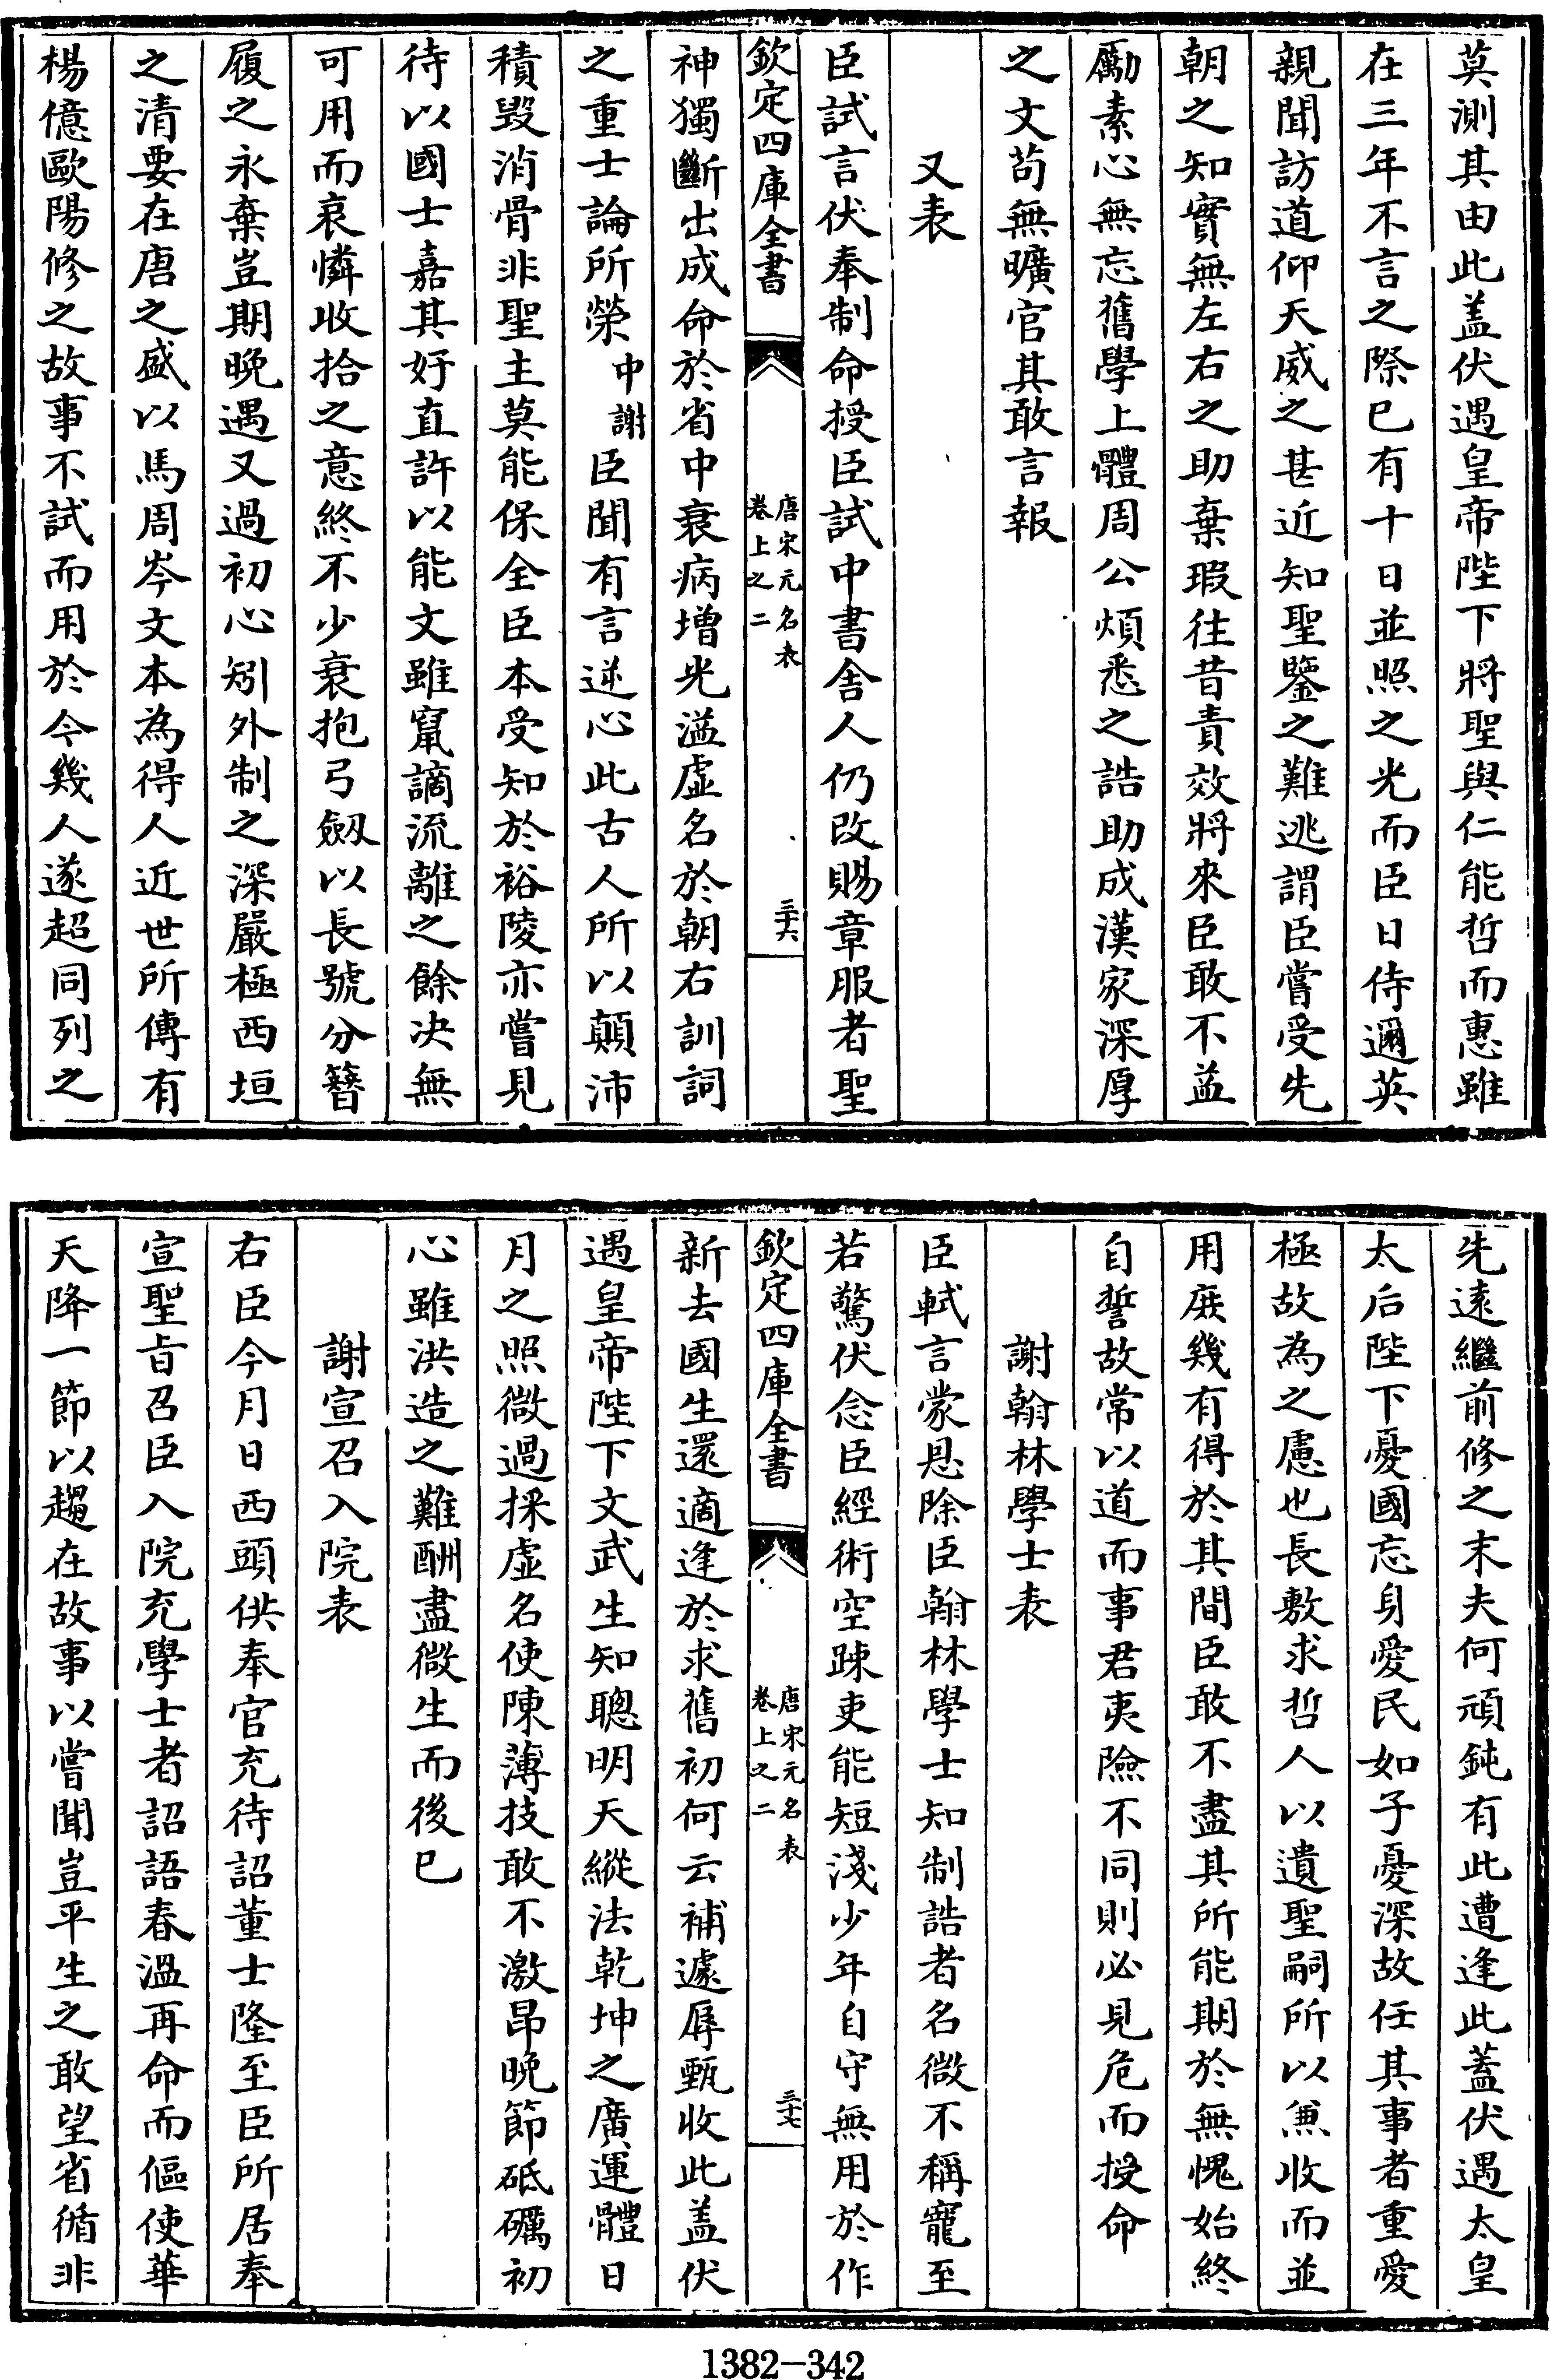 莫測其由此盖伏遇皇帝陛下將聖與仁能哲而惠雖
在三年不言之際已有十日並照之光而臣日侍邇英
親聞訪道仰天威之甚近知聖鑒之難逃謂臣嘗受先
朝之知實無左右之助棄瑕往昔責效將來臣敢不益
勵素心無忘舊學上體周公煩悉之誥助成漢家深厚
之文苟無曠官其敢言報
又表
臣試言伏奉制命授臣試中書舍人仍改賜章服者聖
欽定四庫全書
唐宋元名表
卷上之二
三十六
神獨斷出成命於省中衰病增光溢虛名於朝右訓詞
之重士論所榮中謝臣聞有言逆心此古人所以顛沛
積毀消骨非聖主莫能保全臣本受知於裕陵亦嘗見
待以國士嘉其好直許以能文雖竄謫流離之餘决無
可用而哀憐收拾之意終不少衰抱弓劔以長號分簪
履之永棄豈期晚遇又過初心矧外制之深嚴極西垣
之清要在唐之盛以馬周岑文本為得人近世所傳有
楊億歐陽修之故事不試而用於今幾人遂超同列之
先遠繼前修之末夫何頑鈍有此遭逢此蓋伏遇太皇
太后陛下憂國忘身愛民如子憂深故任其事者重愛
極故為之慮也長敷求哲人以遺聖嗣所以兼收而並
用庶幾有得於其間臣敢不盡其所能期於無愧始終
自誓故常以道而事君夷險不同則必見危而授命
謝翰林學士表
臣軾言蒙恩除臣翰林學士知制誥者名微不稱寵至
若驚伏念臣經術空疎吏能短淺少年自守無用於作
欽定四庫全書
唐宋元名表
卷上之二
三十七
新去國生還適逢於求舊初何云補遽辱甄收此盖伏
遇皇帝陛下文武生知聰明天縱法乾坤之廣運體日
月之照微過採虛名使陳薄技敢不激昂晚節砥礪初
心雖洪造之難酬盡微生而後已
謝宣召入院表
右臣今月日西頭供奉官充待詔董士隆至臣所居奉
宣聖旨召臣入院充學士者詔語春溫再命而傴使華
天降一節以趨在故事以嘗聞豈平生之敢望省循非
1382-342